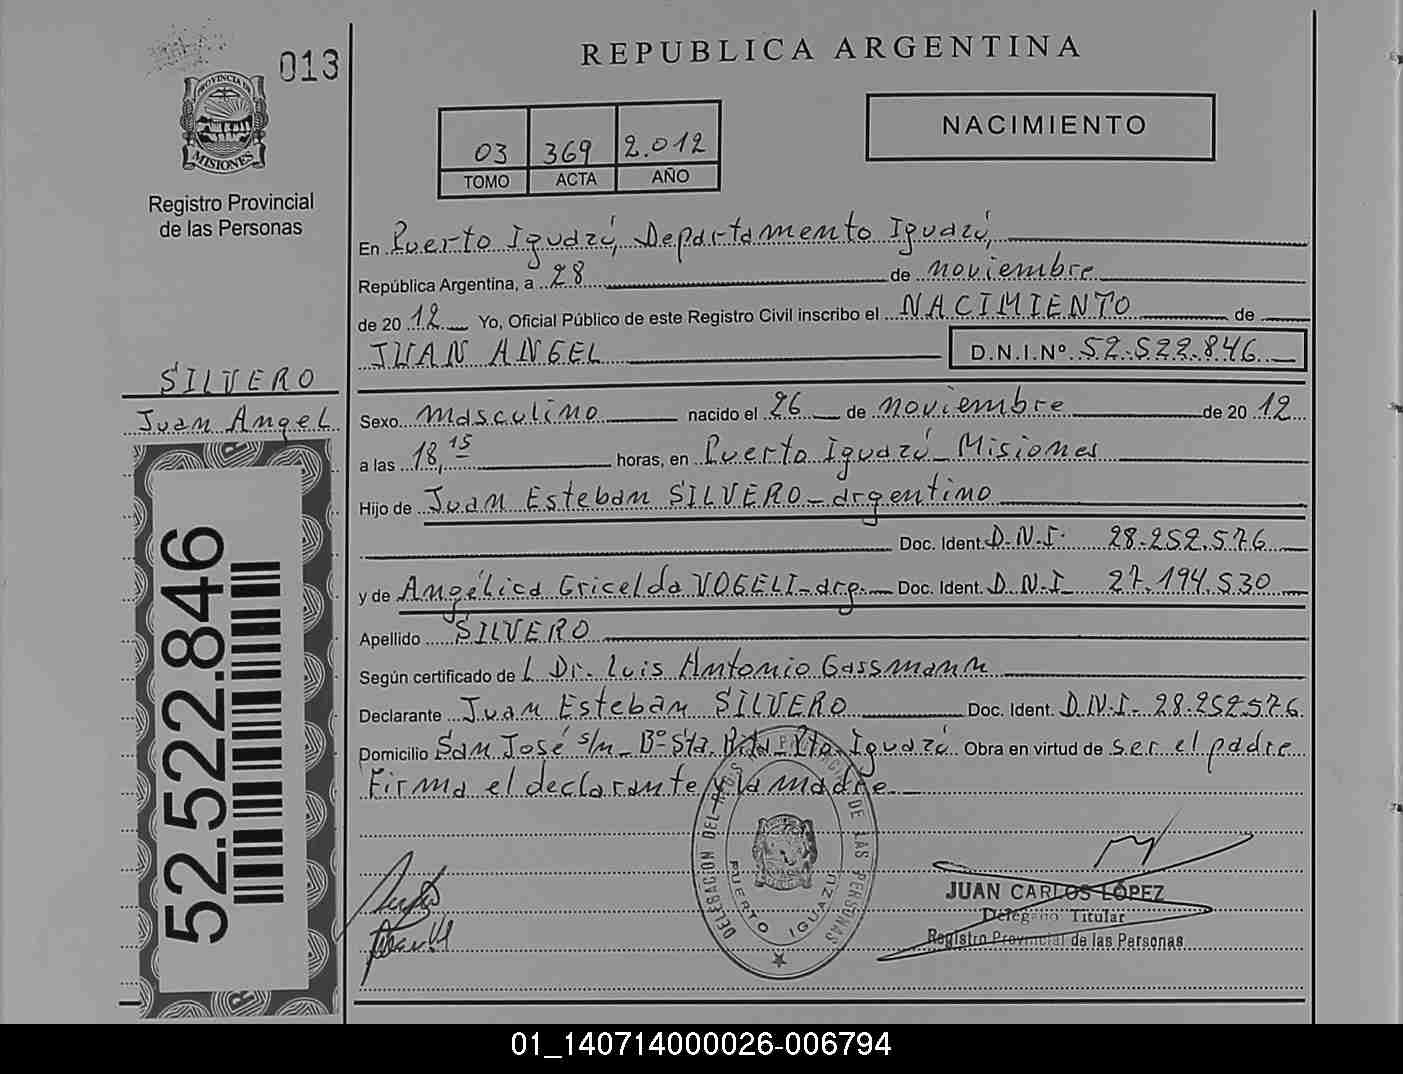 013
PROVINCIA DE
MISIONES
Registro Provincial
de las Personas
REPUBLICA ARGENTINA
03 369 2.012
TOMO ACTA AÑO
NACIMIENTO
En Puerto Iguazú, Departamento Iguazú,
República Argentina, a 28 de noviembre
de 2012 Yo, Oficial Público de este Registro Civil inscribo el NACIMIENTO de
JUAN ANGEL D.N.I.Nº. 52.522.846
SILVERO
Juan Angel
52.522.846
Sexo masculino nacido el 26 de noviembre de 2012
a las 18,15 horas, en Puerto Iguazú Misiones
Hijo de Juan Esteban SILVERO - argentino
Doc. Ident. D.N.I. 28.252.576
y de Angélica Gricelda VOGELI - arg. Doc. Ident. D.N.I 27.194.530
Apellido SILVERO
Según certificado de L Dr. Luis Antonio Gassmann
Declarante Juan Esteban SILVERO Doc. Ident. D.N.I. 28.252576
Domicilio San José s/n - Bº Sta. Rita - Pto. Iguazú Obra en virtud de ser el padre
Firma el declarante y la madre
DELEGACION DEL REG. PROVINCIAL DE LAS PERSONAS
PUERTO IGUAZU
JUAN CARLOS LÓPEZ
Delegado Titular
Registro Provincial de las Personas
01_140714000026-006794